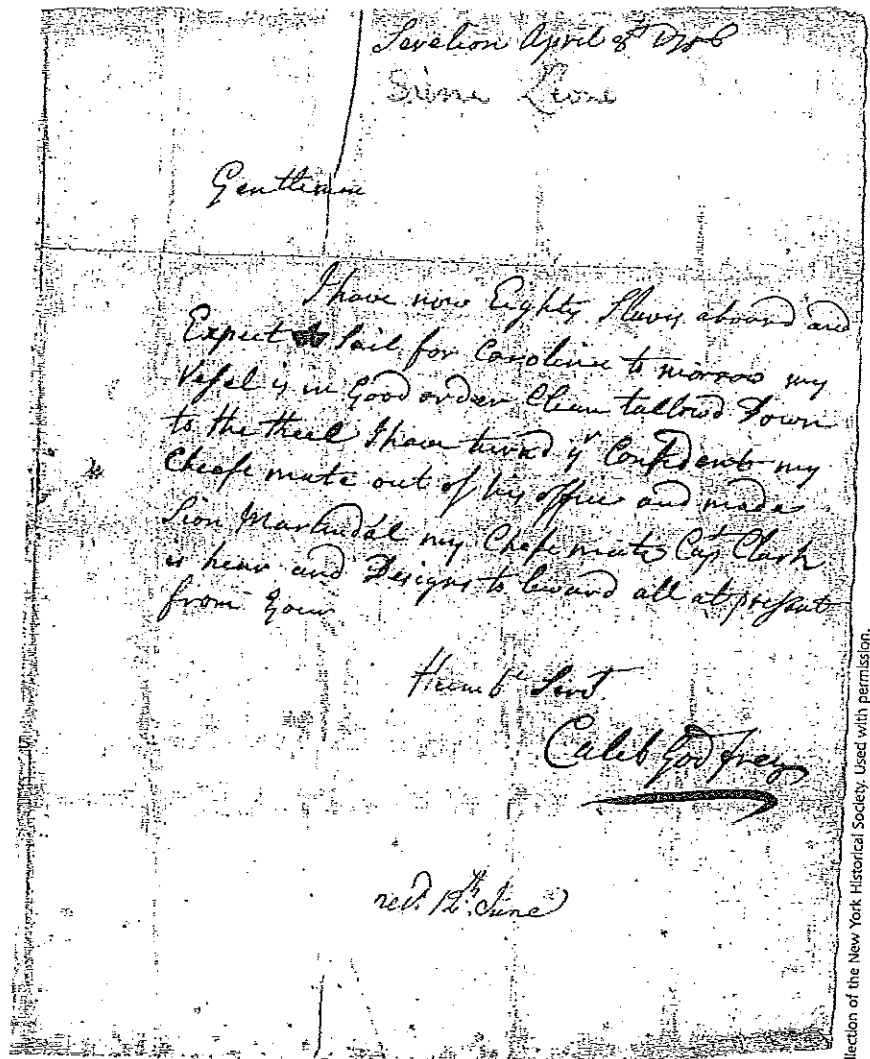 Sevelion April 8th 1756
Siera Leone
Gentlemen
I have now Eighty Slaves aboard and
Expect to Sail for Carolina to morrow my
Vessel is in Good order Clean tallowd Down
to the Keel I have turnd yr Confident my
Cheefe mate out of his office and made
Sion Martindal my Chefe mate Capt Clark
is hear and Designs to leward all at pressat
from Your
Humbe Servt.
Caleb Godfrey
recd. 12th. June
llection of the New York Historical Society. Used with permission.